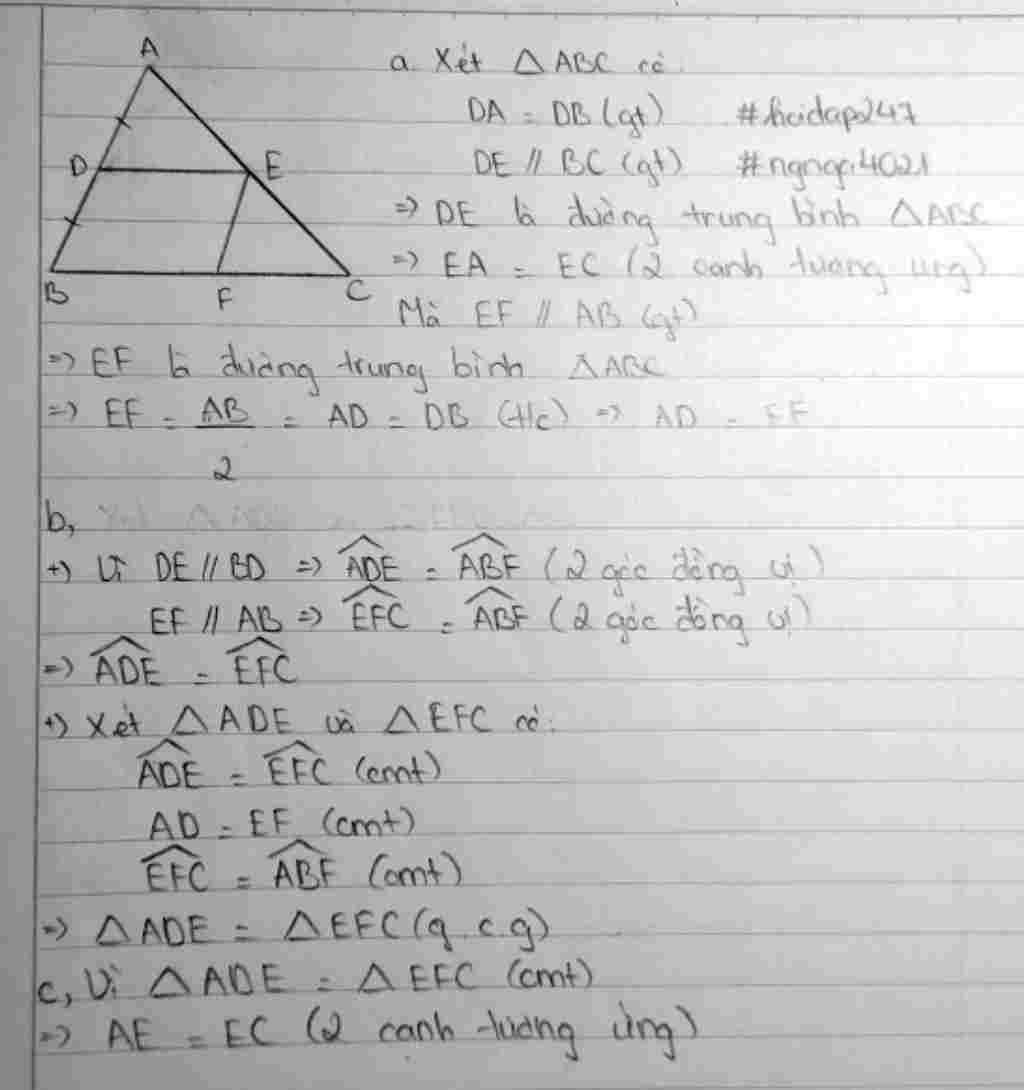 A
a. Xét △ABC có.
DA = DB (gt) #hoidap247
D E
DE // BC (gt)
=> DE là đường trung bình △ABC
=> EA = EC (2 cạnh tương ứng)
B F C
Mà EF // AB (gt)
=> EF là đường trung bình △ABC
=> EF = AB/2 = AD = DB (t/c) => AD = EF
b,
+) Vì DE // BD => \widehat{ADE} = \widehat{ABF} (2 góc đồng vị)
EF // AB => \widehat{EFC} = \widehat{ABF} (2 góc đồng vị)
=> \widehat{ADE} = \widehat{EFC}
+) Xét △ADE và △EFC có:
\widehat{ADE} = \widehat{EFC} (cmt)
AD = EF (cmt)
\widehat{EFC} = \widehat{ABF} (cmt)
=> △ADE = △EFC (g.c.g)
c, Vì △ADE = △EFC (cmt)
=> AE = EC (2 cạnh tương ứng)